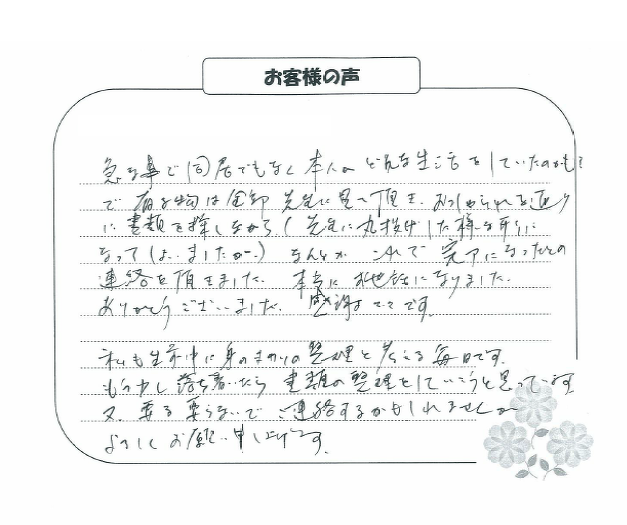 お客様の声
急な事で同居でもなく本人がどんな生活をしていたのかも
で 有る物は全部 先生に見て頂き、おっしゃられる通り
に書類を探しながら(先生に丸投げした様な形に
なってしまいましたが) なんとか これで完了になったとの
連絡を頂きました。 本当にお世話になりました。
ありがとうございました。感謝 です。
私も生前中に身のまわりの整理と考える毎日です。
もう少し落ち着いたら 書類の整理をしていこうと思っています
又、 で ご連絡するかもしれませんが
よろしくお願い申し上げます。